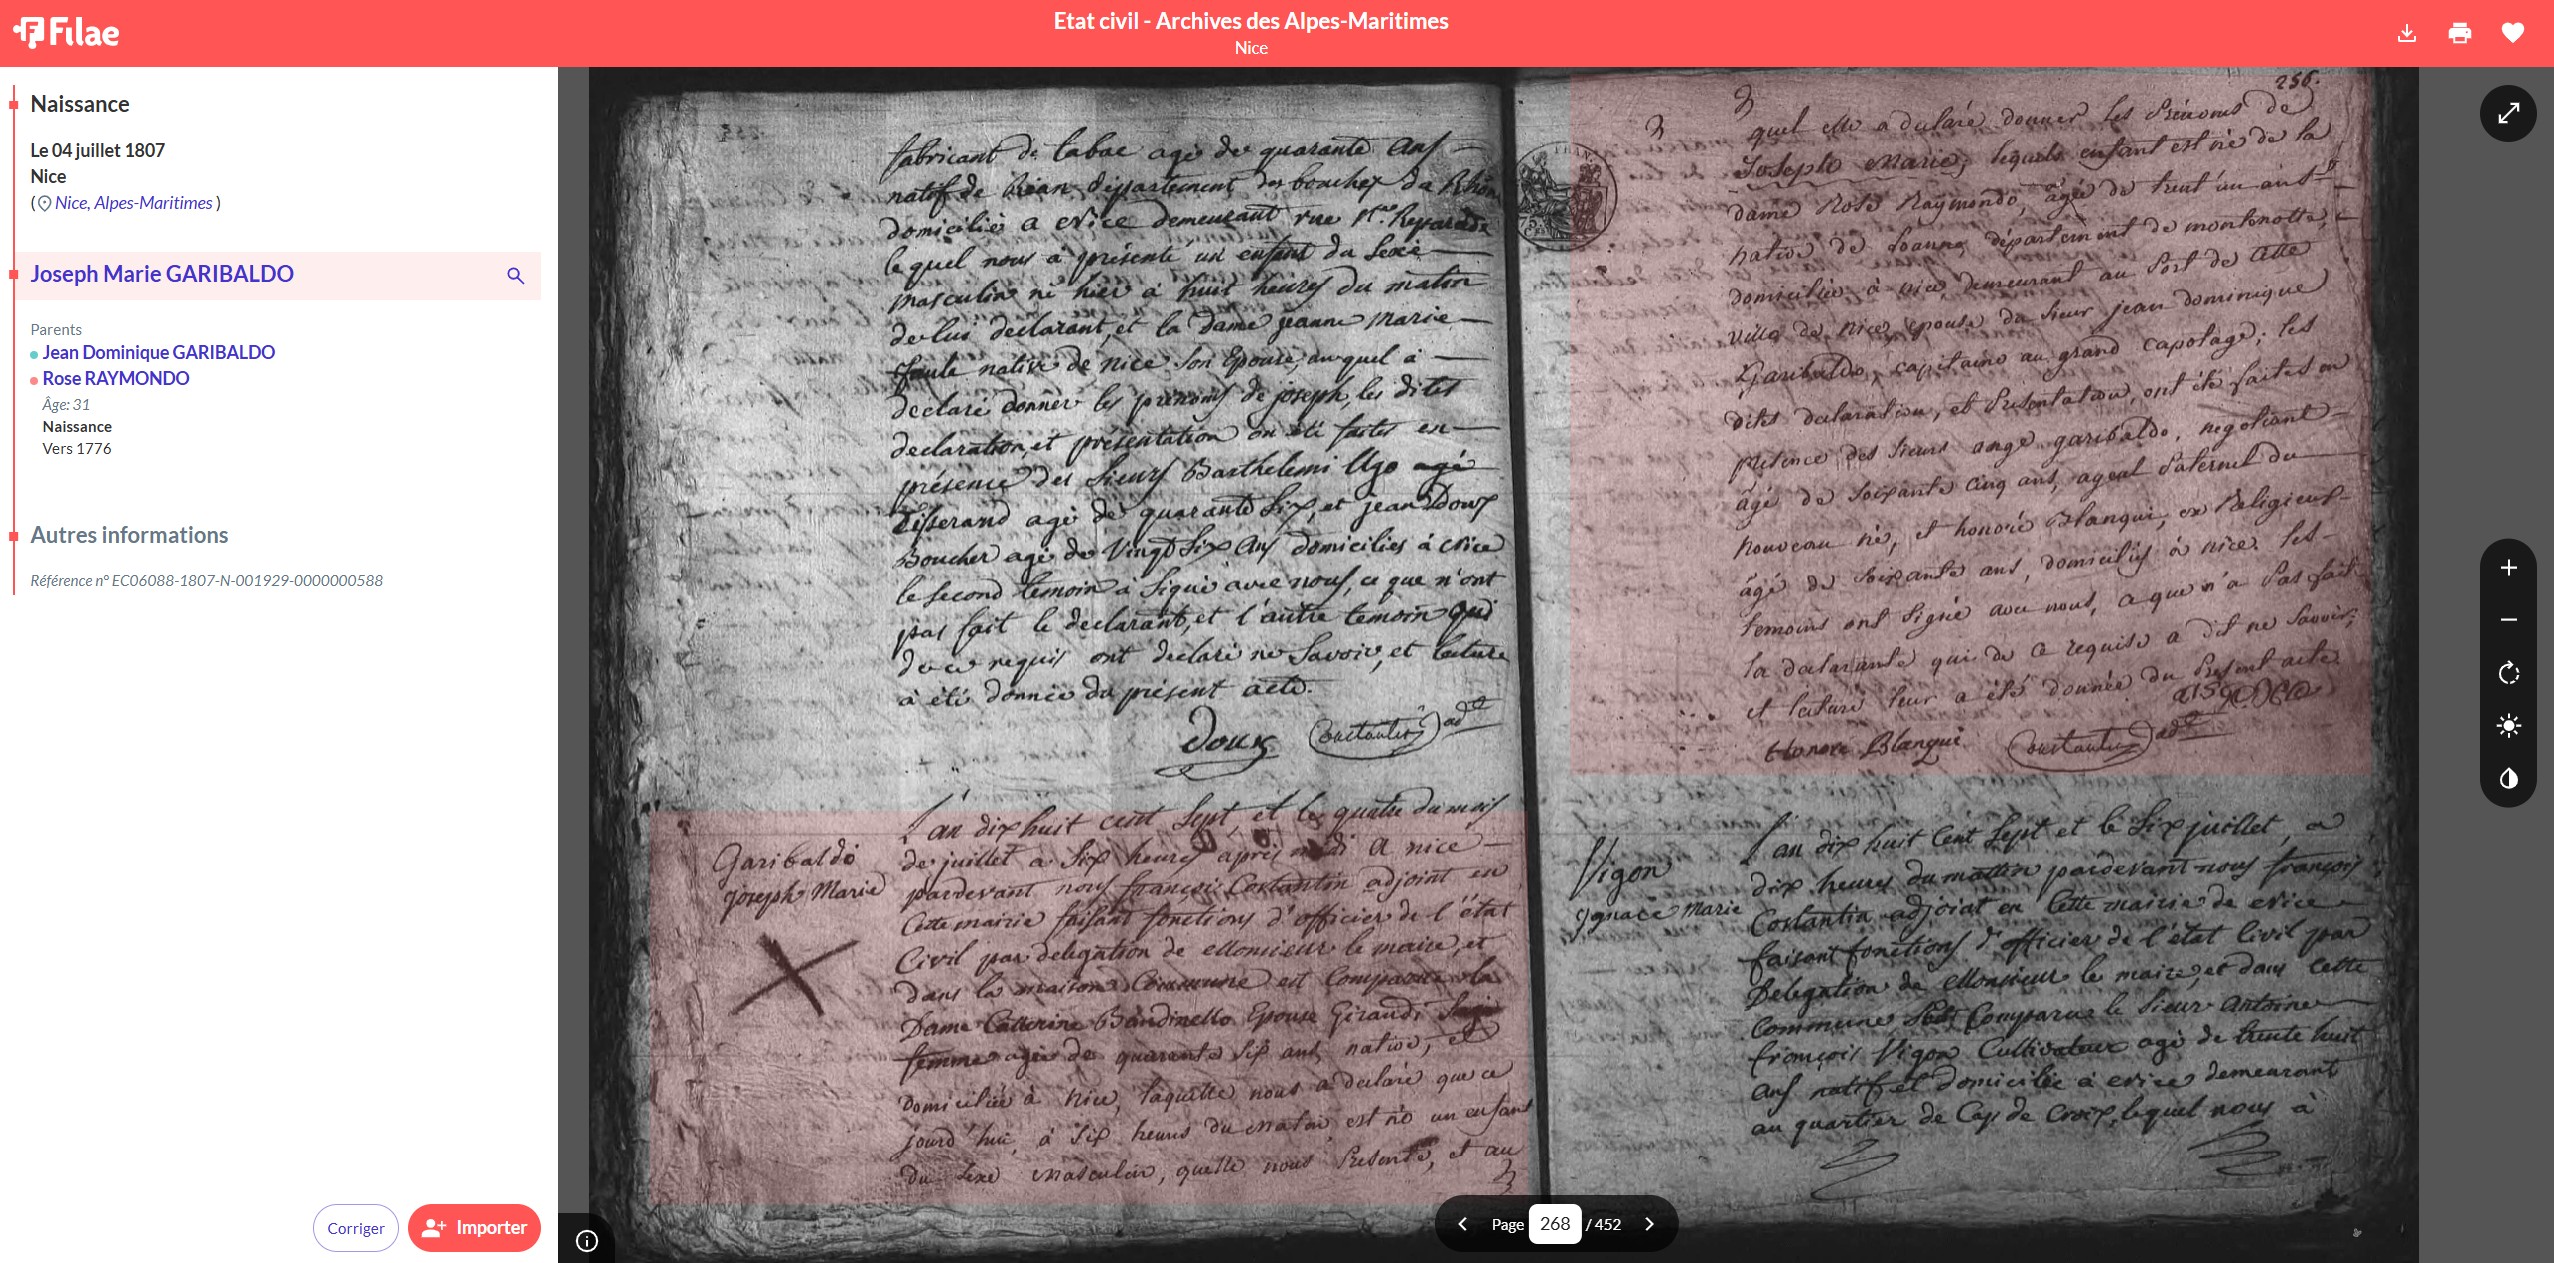 Filae
Etat civil - Archives des Alpes-Maritimes
Nice
Naissance
Le 04 juillet 1807
Nice
( Nice, Alpes-Maritimes )
Joseph Marie GARIBALDO
Parents
Jean Dominique GARIBALDO
Rose RAYMONDO
Âge: 31
Naissance
Vers 1776
Autres informations
Référence n° EC06088-1807-N-001929-0000000588
Corriger
Importer
fabricant de tabac agé de quarante ans
natif de département des bouches du Rhône
domicilié a Nice demeurant rue Ste Reparade
lequel nous a présenté un enfant du sexe
masculin né hier a huit heures du matin
de lui declarant, et la dame jeanne marie
faule native de nice son Epouse, auquel à
declaré donner les prenoms de joseph, les dites
declaration, et présentation on été faites en
présence des sieurs Barthelemi Ugo agé
Tisserand agé de quarante six, et jean Doux
Boucher agé de Vingt six ans domiciliés à Nice
le second temoin à signé avec nous, ce que n'ont
pas fait le declarant, et l'autre temoin qui
de ce requis ont declaré ne savoir, et lecture
à été donnée du présent acte.
Doux Constantin adt
Garibaldo
joseph Marie
L'an dix huit cent sept, et le quatre du mois
de juillet a six heures après midi a nice
pardevant nous françois Costantin adjoint en
Cette mairie faisant fonctions d'officier de l'état
Civil par delegation de Monsieur le maire, et
dans la maison Commune est Comparue la
Dame Catterine Bandinello Epouse Giraudi sage
femme agée de quarante six ans, native, et
domiciliée à Nice, laquelle nous a declaré que ce
jourd'hui, à six heures du matin, est né un enfant
du sexe masculin, quelle nous presente, et au
256.
quel elle a declaré donner les prénoms de
Joseph Marie, lequel enfant est né de la
dame Rose Raymondo, agée de trent'un ans
native de Loanno, département de montenotte,
domiciliée à nice, demeurant au Port de cette
ville de Nice, epouse du sieur jean dominique
Garibaldo, capitaine au grand capotage; les
dites declaration, et presentation, ont été faites en
présence des sieurs ange garibaldo, negotiant
âgé de soixante cinq ans, ageul paternel du
nouveau né, et honoré Blanqui, ex Religieux
âgé de soixante ans, domiciliés à nice. les
temoins ont signé avec nous, ce que n'a pas fait
la declarante qui de ce requise a dit ne savoir,
et lecture leur a été donnée du present acte.
Honore Blanqui Constantin adt
Vigon
ignace Marie
L'an dix huit cent sept et le six juillet, a
dix heures du mattin pardevant nous françois
Costantin adjoint en Cette mairie de Nice
faisant fonctions d'officier de l'état Civil par
Delegation de Monsieur le maire, et dans Cette
Commune Comparu le sieur Antoine
françois Vigon Cultivateur agé de trente huit
ans natif et domicilié à Nice demeurant
au quartier de Cap de Croix, lequel nous à
Page 268 / 452